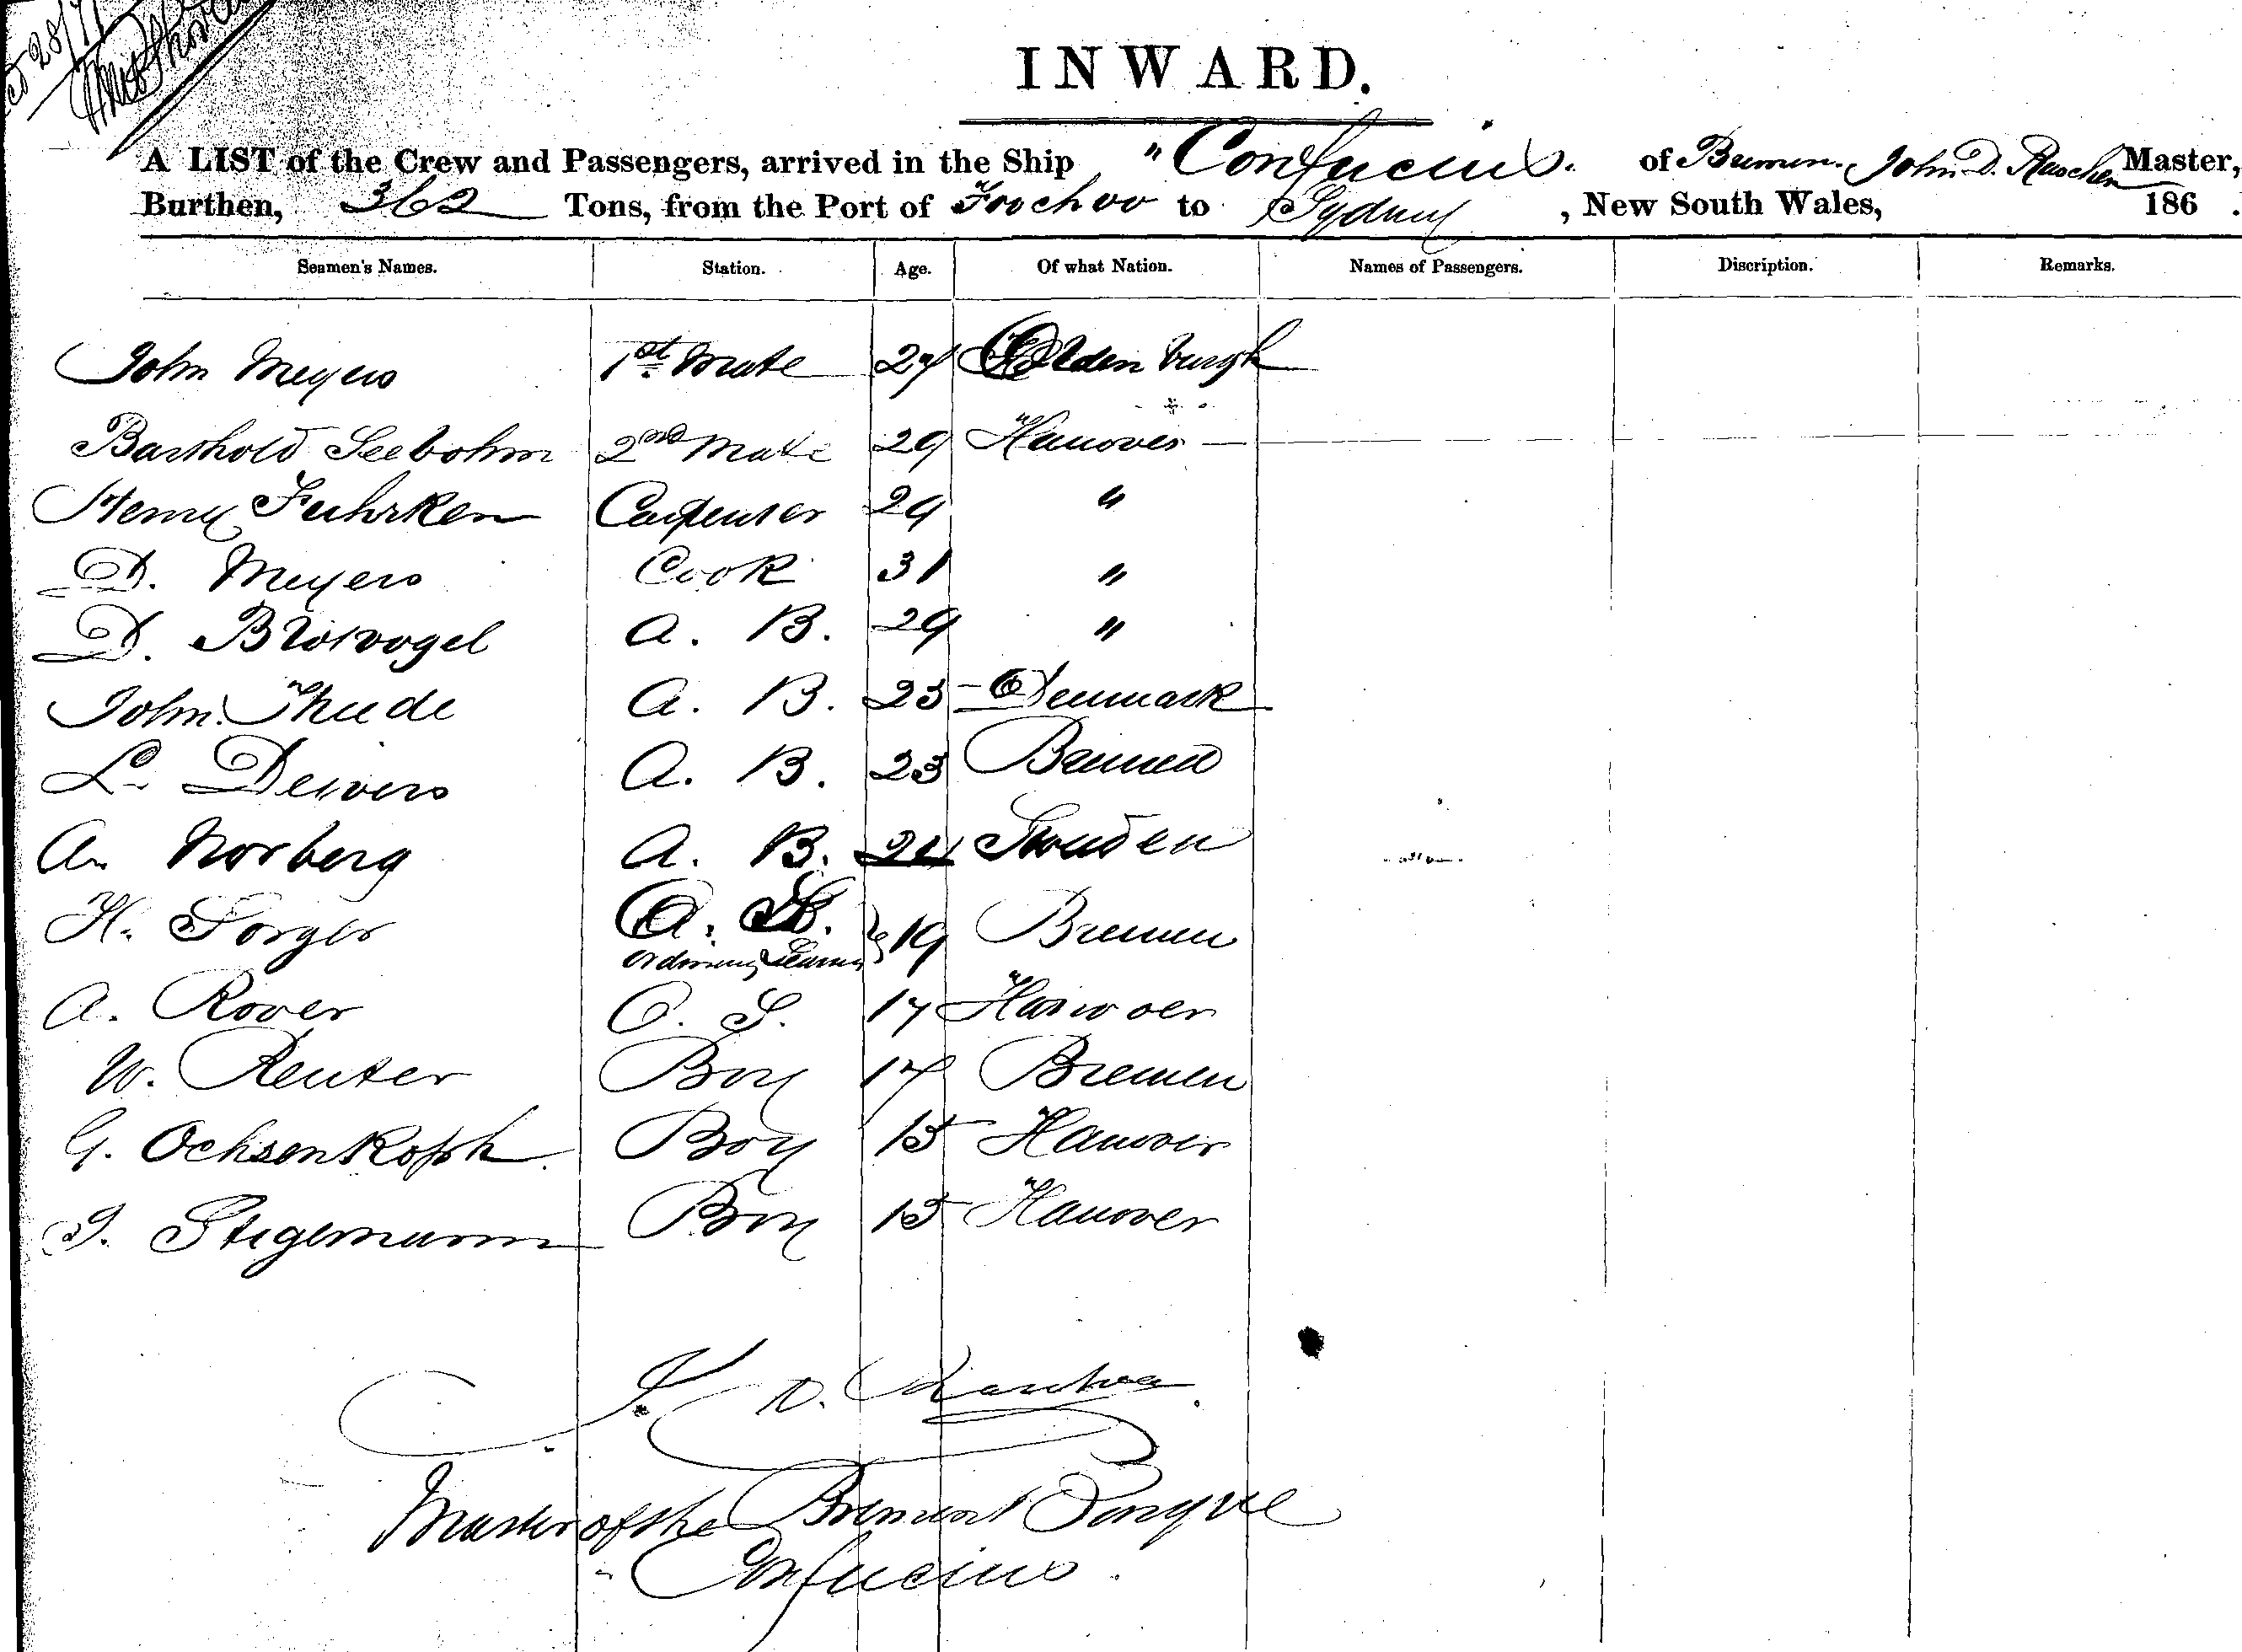 28/7
INWARD.
A LIST of the Crew and Passengers, arrived in the Ship "Confucius. of Bremen. John D. Raschen Master,
Burthen, 362 Tons, from the Port of Foochoo to Sydney, New South Wales, 186 .
Seamen's Names. Station. Age. Of what Nation. Names of Passengers. Discription. Remarks.
John Meyers 1st Mate 27 Oldenburgh
Barthold Seebohm 2nd Mate 29 Hanover
Henry Fuhrken Carpenter 29 "
D. Meyers Cook 31 "
D. Brörvogel A. B. 29 "
John Thude A. B. 23 Denmark
L. Deivers A. B. 23 Bremen
A. Norberg A. B. 21 Sweden
H. Sorger A. B. 19 Bremen
Ordinary Seaman
A. Rover O. S. 17 Hanover
W. Reuter Boy 17 Bremen
G. Ochsenkoph Boy 15 Hanover
Stegemann Boy 15 Hanover
J. D. Raschen
Master of the Bremen Barque
Confucius.